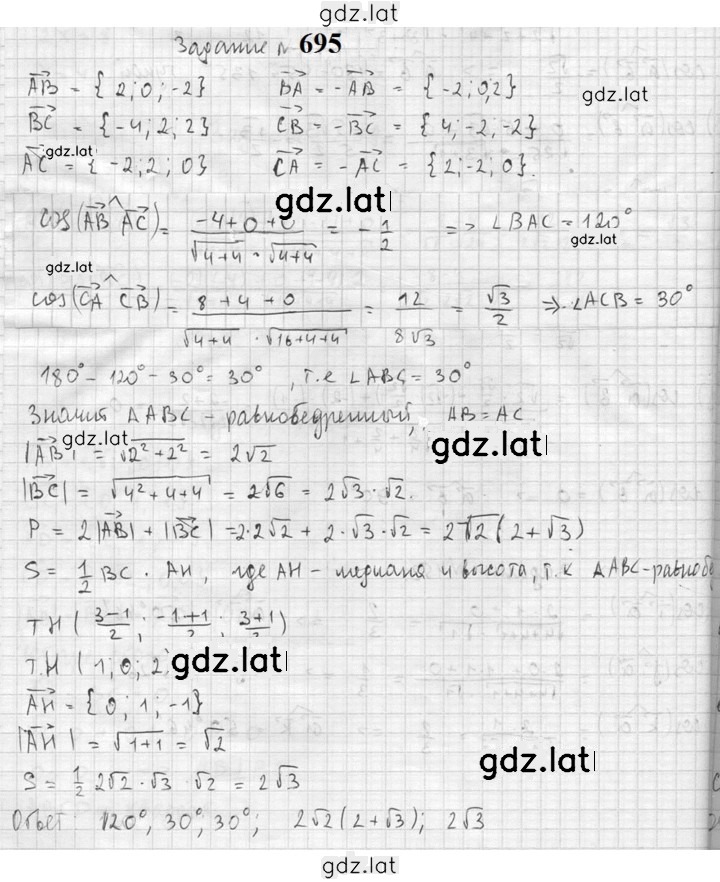 gdz.lat
Задание № 695
AB = {2; 0; -2} BA = -AB = {-2; 0; 2}
gdz.lat
BC = {-4; 2; 2} CB = -BC = {4; -2; -2}
gdz.lat
AC = {-2; 2; 0} CA = -AC = {2; -2; 0}.
gdz.lat
cos(AB^AC) = (-4+0+0)/(√(4+4) · √(4+4)) = -1/2 => ∠BAC = 120°
gdz.lat
gdz.lat
cos(CA^CB) = (8+4+0)/(√(4+4) · √(16+4+4)) = 12/(8√3) = √3/2 => ∠ACB = 30°
180° - 120° - 30° = 30°, т.е ∠ABC = 30°
Значит ΔABC - равнобедренный, AB = AC
gdz.lat
|AB| = √(2²+2²) = 2√2
gdz.lat
|BC| = √(4²+4+4) = 2√6 = 2√3·√2.
P = 2|AB| + |BC| = 2·2√2 + 2·√3·√2 = 2√2(2+√3)
S = 1/2 BC · AH, где AH - медиана и высота, т.к ΔABC-равнобе
gdz.lat
т H ((3-1)/2; (-1+1)/2; (3+1)/2)
т.H (1; 0; 2)
gdz.lat
AH = {0; 1; -1}
|AH| = √(1+1) = √2
gdz.lat
S = 1/2 2√2 · √3 · √2 = 2√3
Ответ: 120°, 30°, 30°; 2√2(2+√3); 2√3
gdz.lat